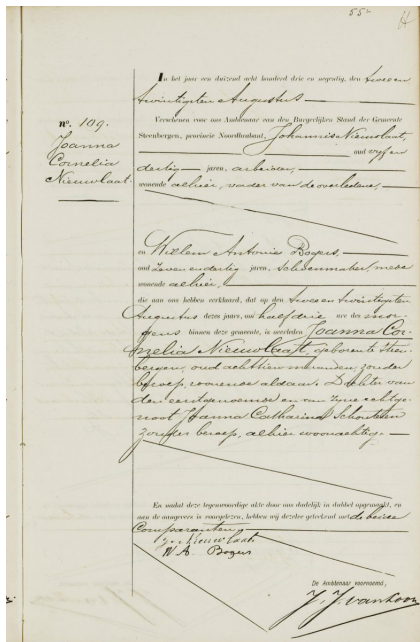 55
In het jaar een duizend acht honderd drie en negentig, den twee en
twintigsten Augustus
Verscheen voor ons Ambtenaar van den Burgerlijken Stand der Gemeente
Steenbergen, provincie Noordbrabant, Johannis Nieuwlaat,
oud vijf en
dertig jaren, arbeider,
wonende alhier, vader van de overledene,
n°. 109.
Joanna
Cornelia
Nieuwlaat
en Willem Antonie Bogers,
oud zeven en dertig jaren, schoenmaker, mede
wonende alhier,
die aan ons hebben verklaard, dat op den twee en twintigsten
Augustus dezes jaars, om half drie ure des mor-
gens binnen deze gemeente, is overleden Joanna Cor-
nelia Nieuwlaat, geboren te Steen-
bergen, oud achttien maanden, zonder
beroep, wonende aldaar. Dochter van
den eerstgenoemde en van zijne echtge-
noot Joanna Catharina Schouten
zonder beroep, alhier woonachtig.
En is van deze tegenwoordige akte door ons dadelijk in dubbel opgemaakt, en
aan de aangevers is voorgelezen, hebben wij dezelve geteekend met de beide
Comparanten,
J. Nieuwlaat
W A Bogers
De Ambtenaar voornoemd,
J. J. van Loon